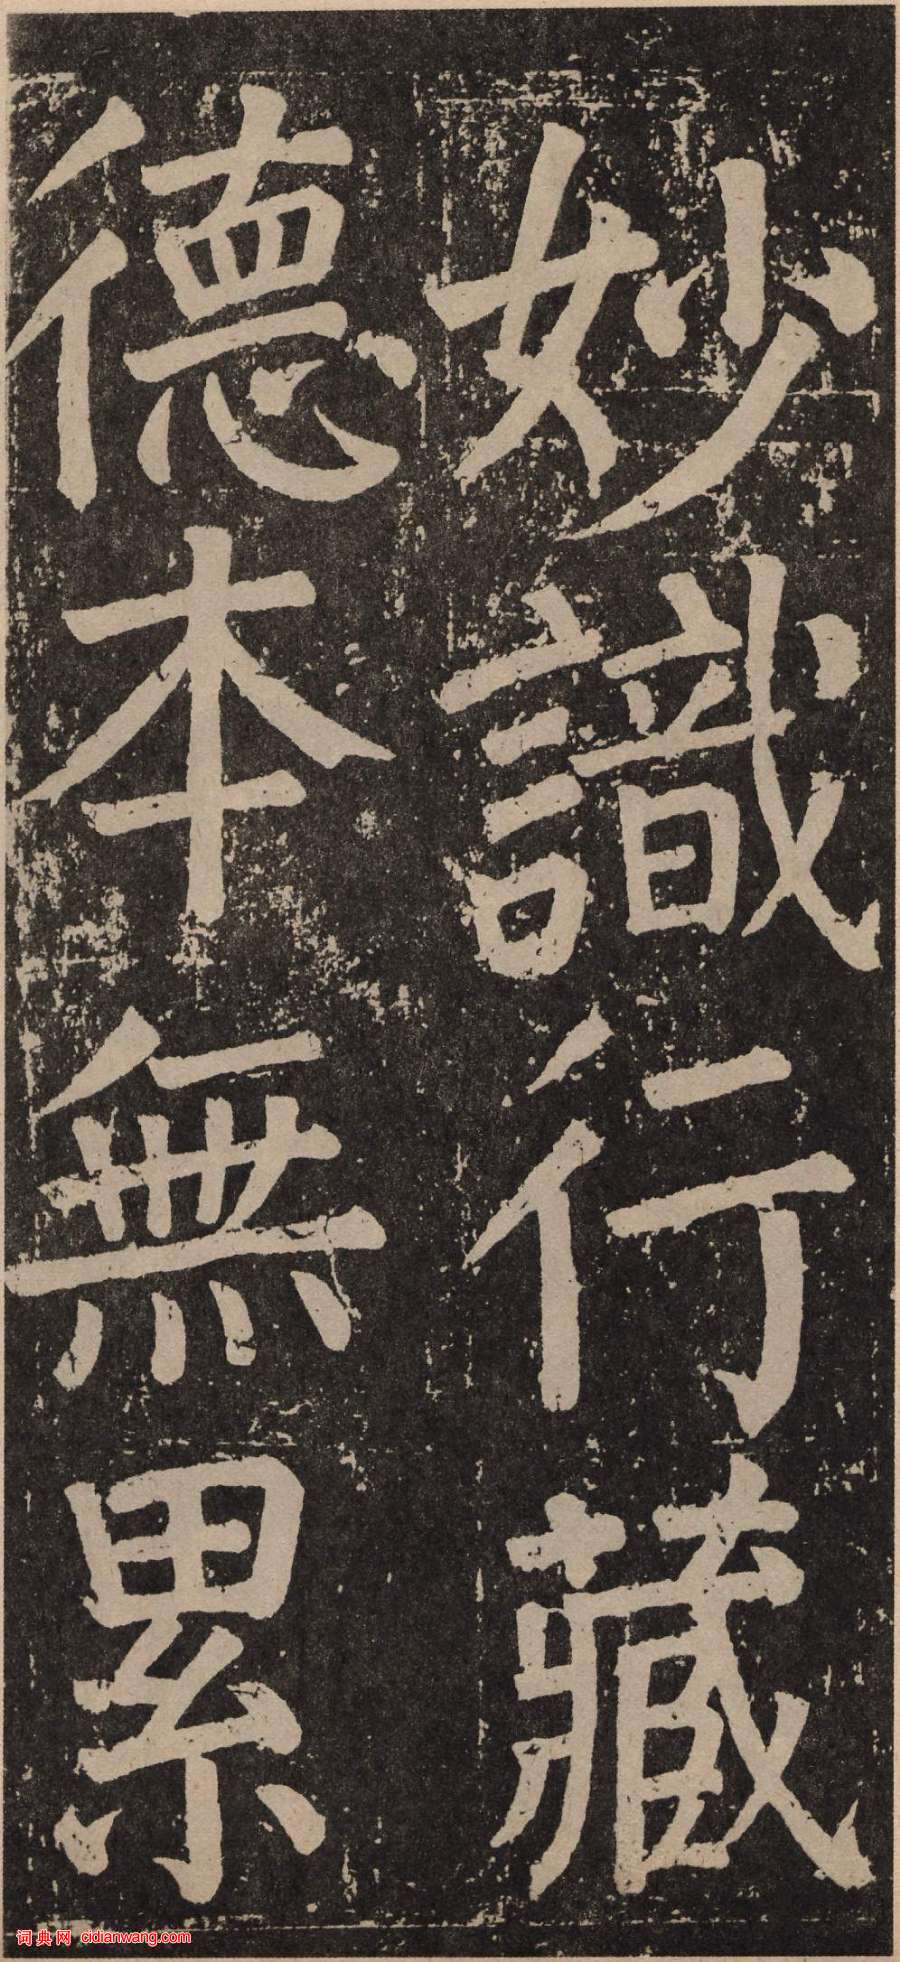 妙識行藏
德本無累
词典网 cidianwang.com